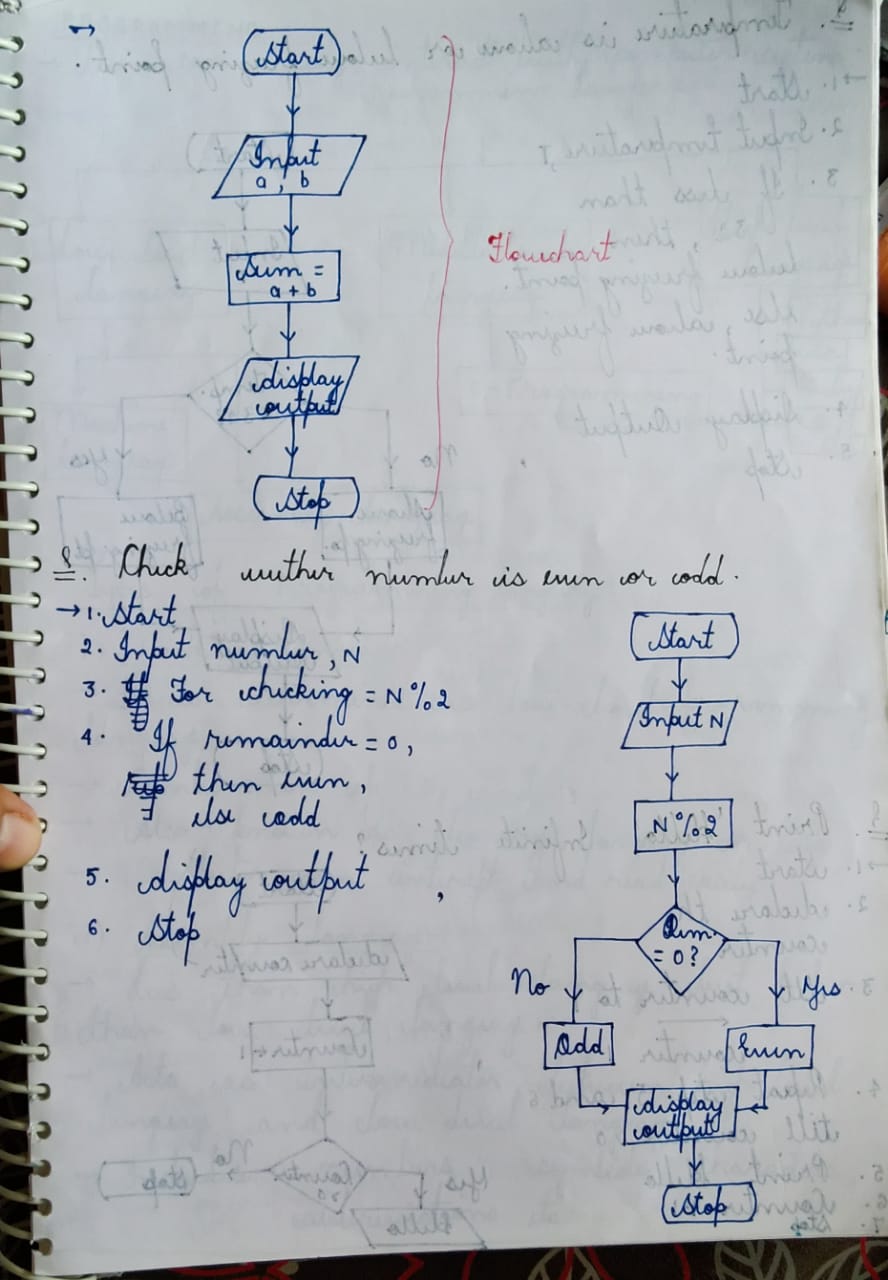 Start
Input
a, b
Sum =
a + b
display
output
Stop
Flowchart
Q. Check wether number is even or odd.
→ 1. Start
2. Input number, N
3. For checking = N % 2
4. If remainder = 0,
then even,
else odd
5. display output
6. Stop
Start
Input N
N % 2
Rem.
= 0?
No
Yes
Odd
Even
display
output
Stop